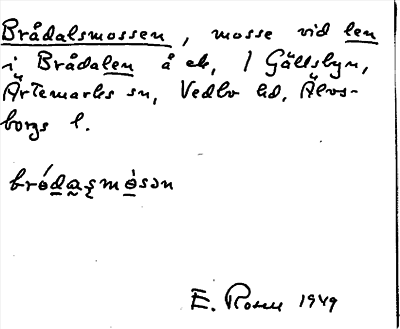 Brådalsmossen, mosse vid len
i Brådalen å ek, 1 Gällsbyn,
Ärtemarks sn, Vedbo hd, Älvs-
borgs l.
E. Rosén 1949